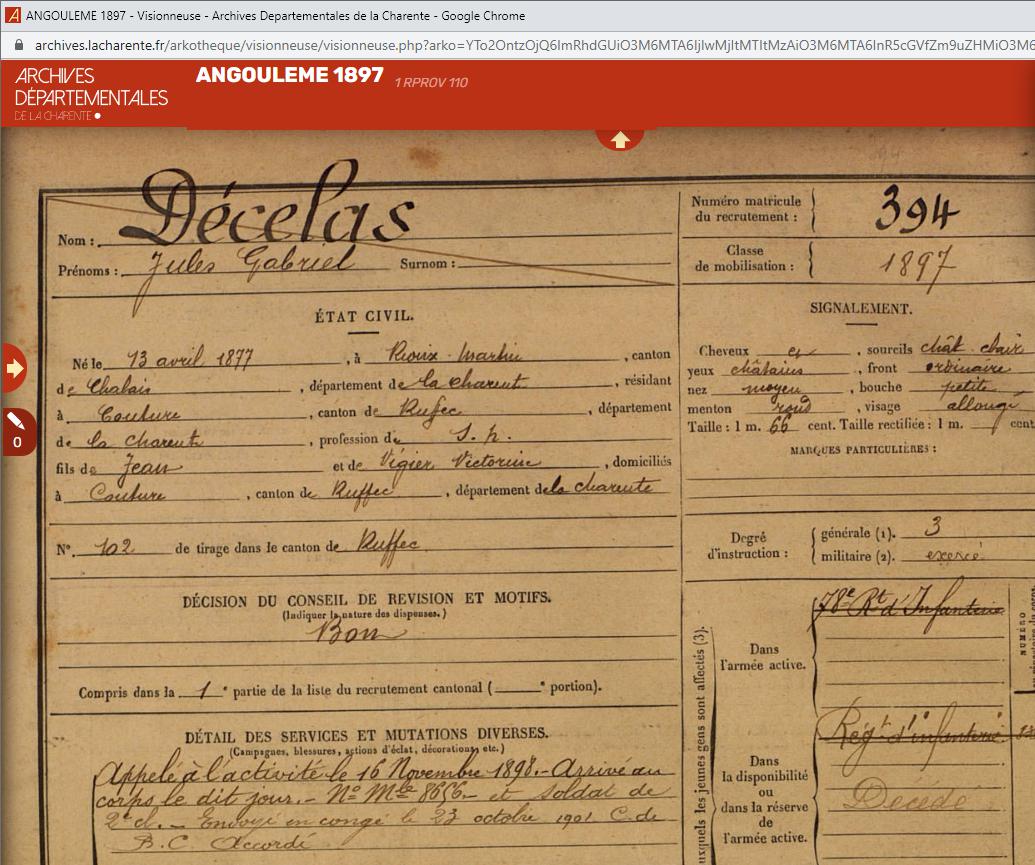 ANGOULEME 1897 - Visionneuse - Archives Departementales de la Charente - Google Chrome
archives.lacharente.fr/arkotheque/visionneuse/visionneuse.php?arko=
ARCHIVES
DÉPARTEMENTALES
DE LA CHARENTE
ANGOULEME 1897 1 RPROV 110
0
Nom : Décelas
Prénoms : Jules Gabriel Surnom :
Numéro matricule
du recrutement : 394
Classe
de mobilisation : 1897
ÉTAT CIVIL.
Né le 13 avril 1877, à Rioux-Martin, canton
de Chalais, département de la charente, résidant
à Couture, canton de Ruffec, département
de la charente, profession de S. p.
fils de Jean et de Vigier Victorine, domiciliés
à Couture, canton de Ruffec, département de la charente
N° 102 de tirage dans le canton de Ruffec
DÉCISION DU CONSEIL DE REVISION ET MOTIFS.
(Indiquer la nature des dispenses.)
Bon
Compris dans la 1e partie de la liste du recrutement cantonal ( e portion).
DÉTAIL DES SERVICES ET MUTATIONS DIVERSES.
(Campagnes, blessures, actions d'éclat, décorations, etc.)
Appelé à l'activité le 16 Novembre 1898.- Arrivé au
corps le dit jour.- N° Mle 8656 - et soldat de
2e cl. - Envoyé en congé le 23 octobre 1901 C. de
B. C. Accordé
SIGNALEMENT.
Cheveux et, sourcils chât. clair
yeux châtains, front ordinaire
nez moyen, bouche petite
menton rond, visage allongé
Taille : 1 m. 66 cent. Taille rectifiée : 1 m. cent
MARQUES PARTICULIÈRES :
Degré
d'instruction :
générale (1). 3
militaire (2). exercé
uxquels les jeunes gens sont affectés (3).
Dans
l'armée active.
78e Rt d'Infanterie
NUMÉRO
Dans
la disponibilité
ou
dans la réserve
de
l'armée active.
Régt d'infanterie
Décédé